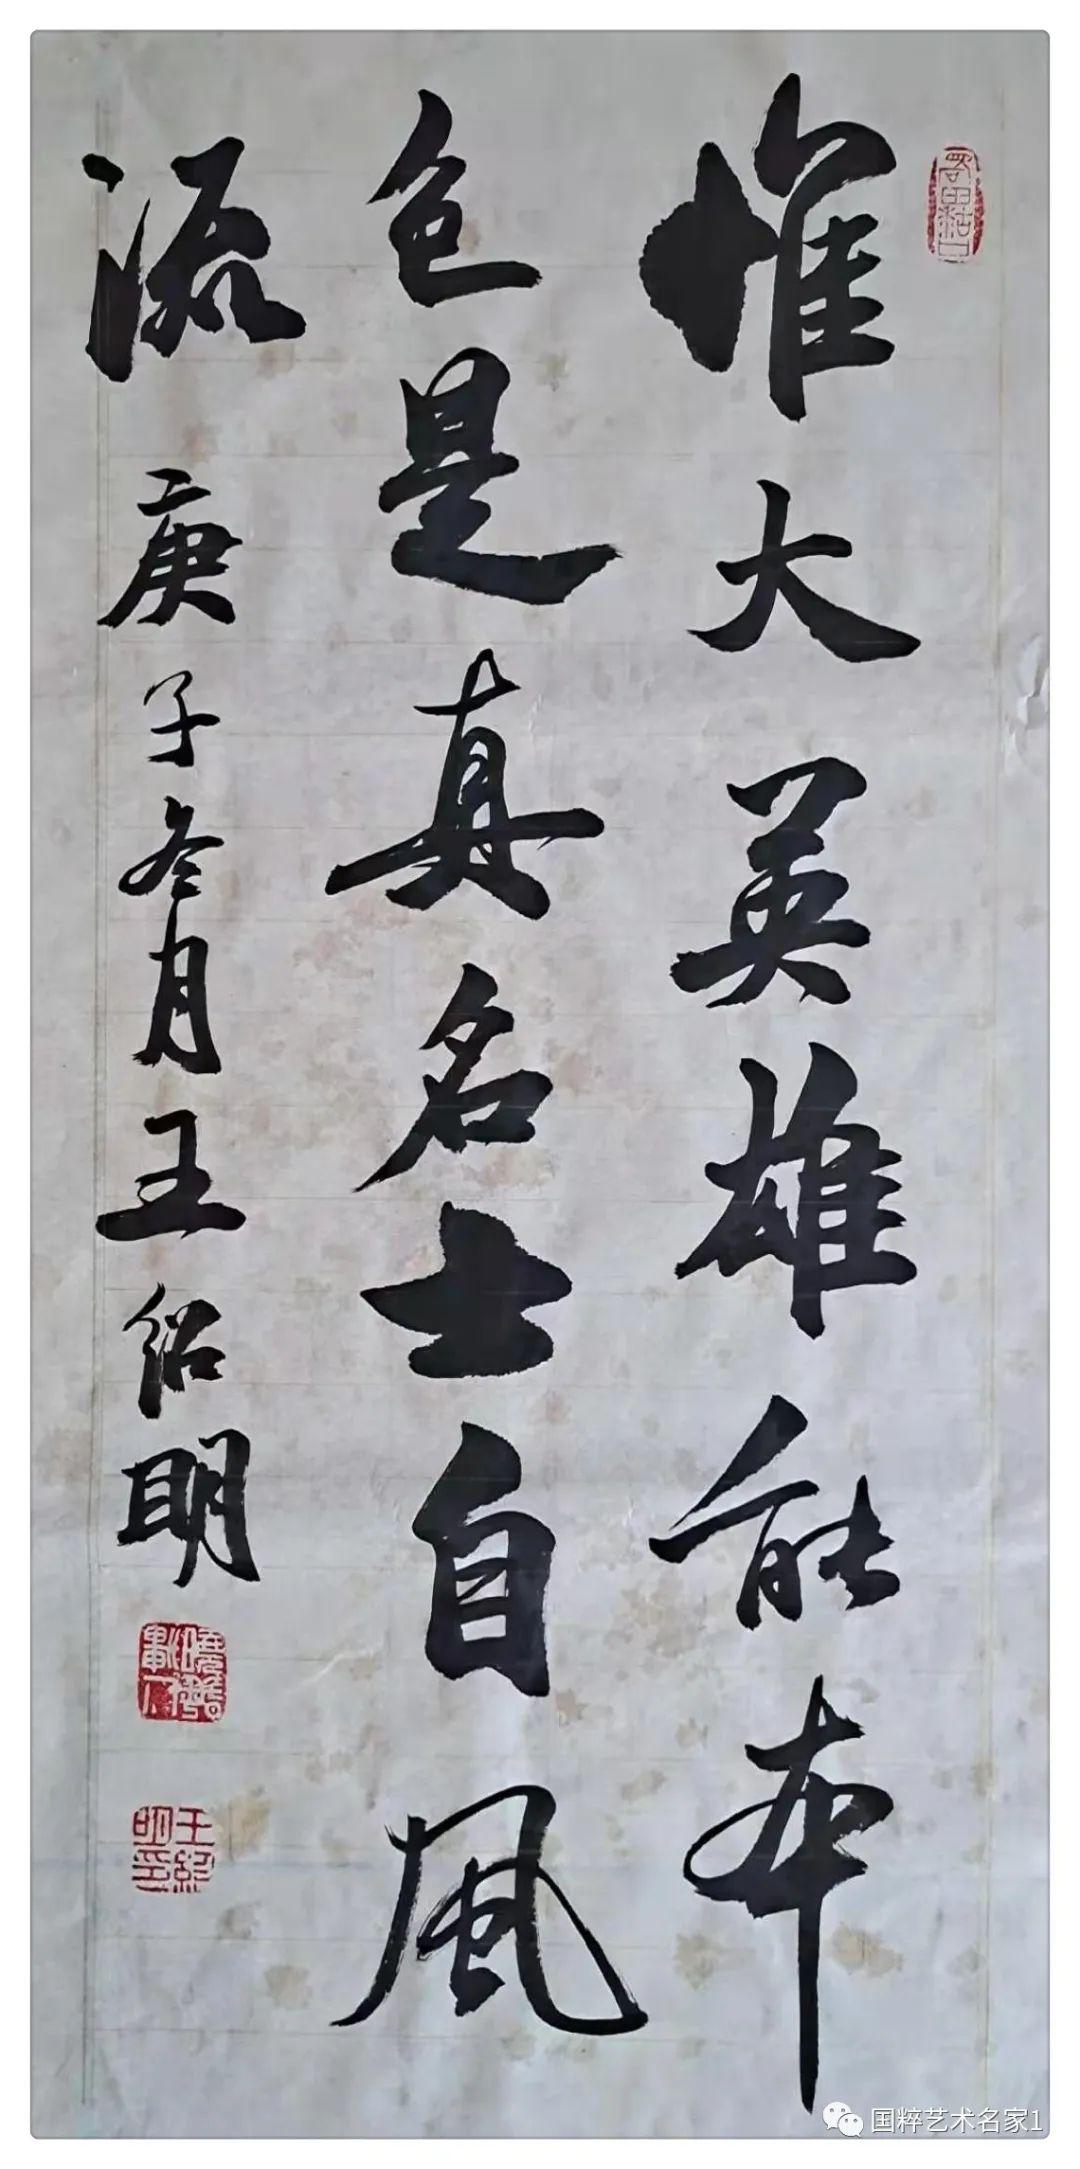 惟大英雄能本
色是真名士自風
流 庚子冬月王紹明
王紹明印
国粹艺术名家1